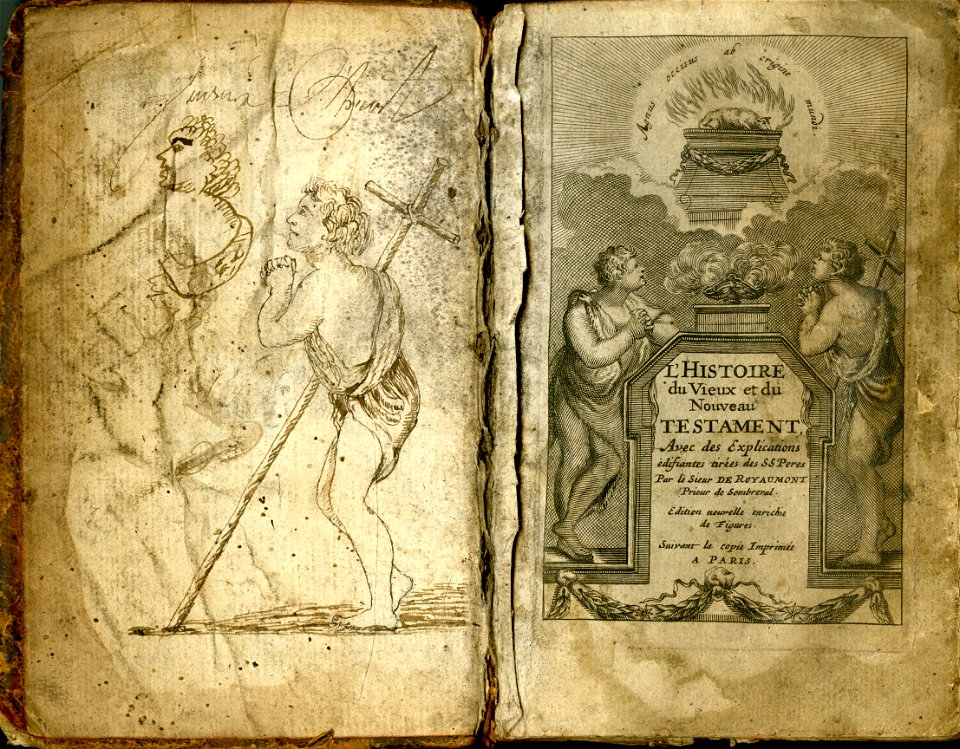 Agnus occisus ab origine mundi.
L'HISTOIRE
du Vieux et du
Nouveau
TESTAMENT,
Avec des Explications
édifiantes tirées des SS Peres
Par le Sieur DE ROYAUMONT
Prieur de Sombreval.
Edition nouvelle enrichie
de Figures.
Suivant la copie Imprimée
A PARIS.